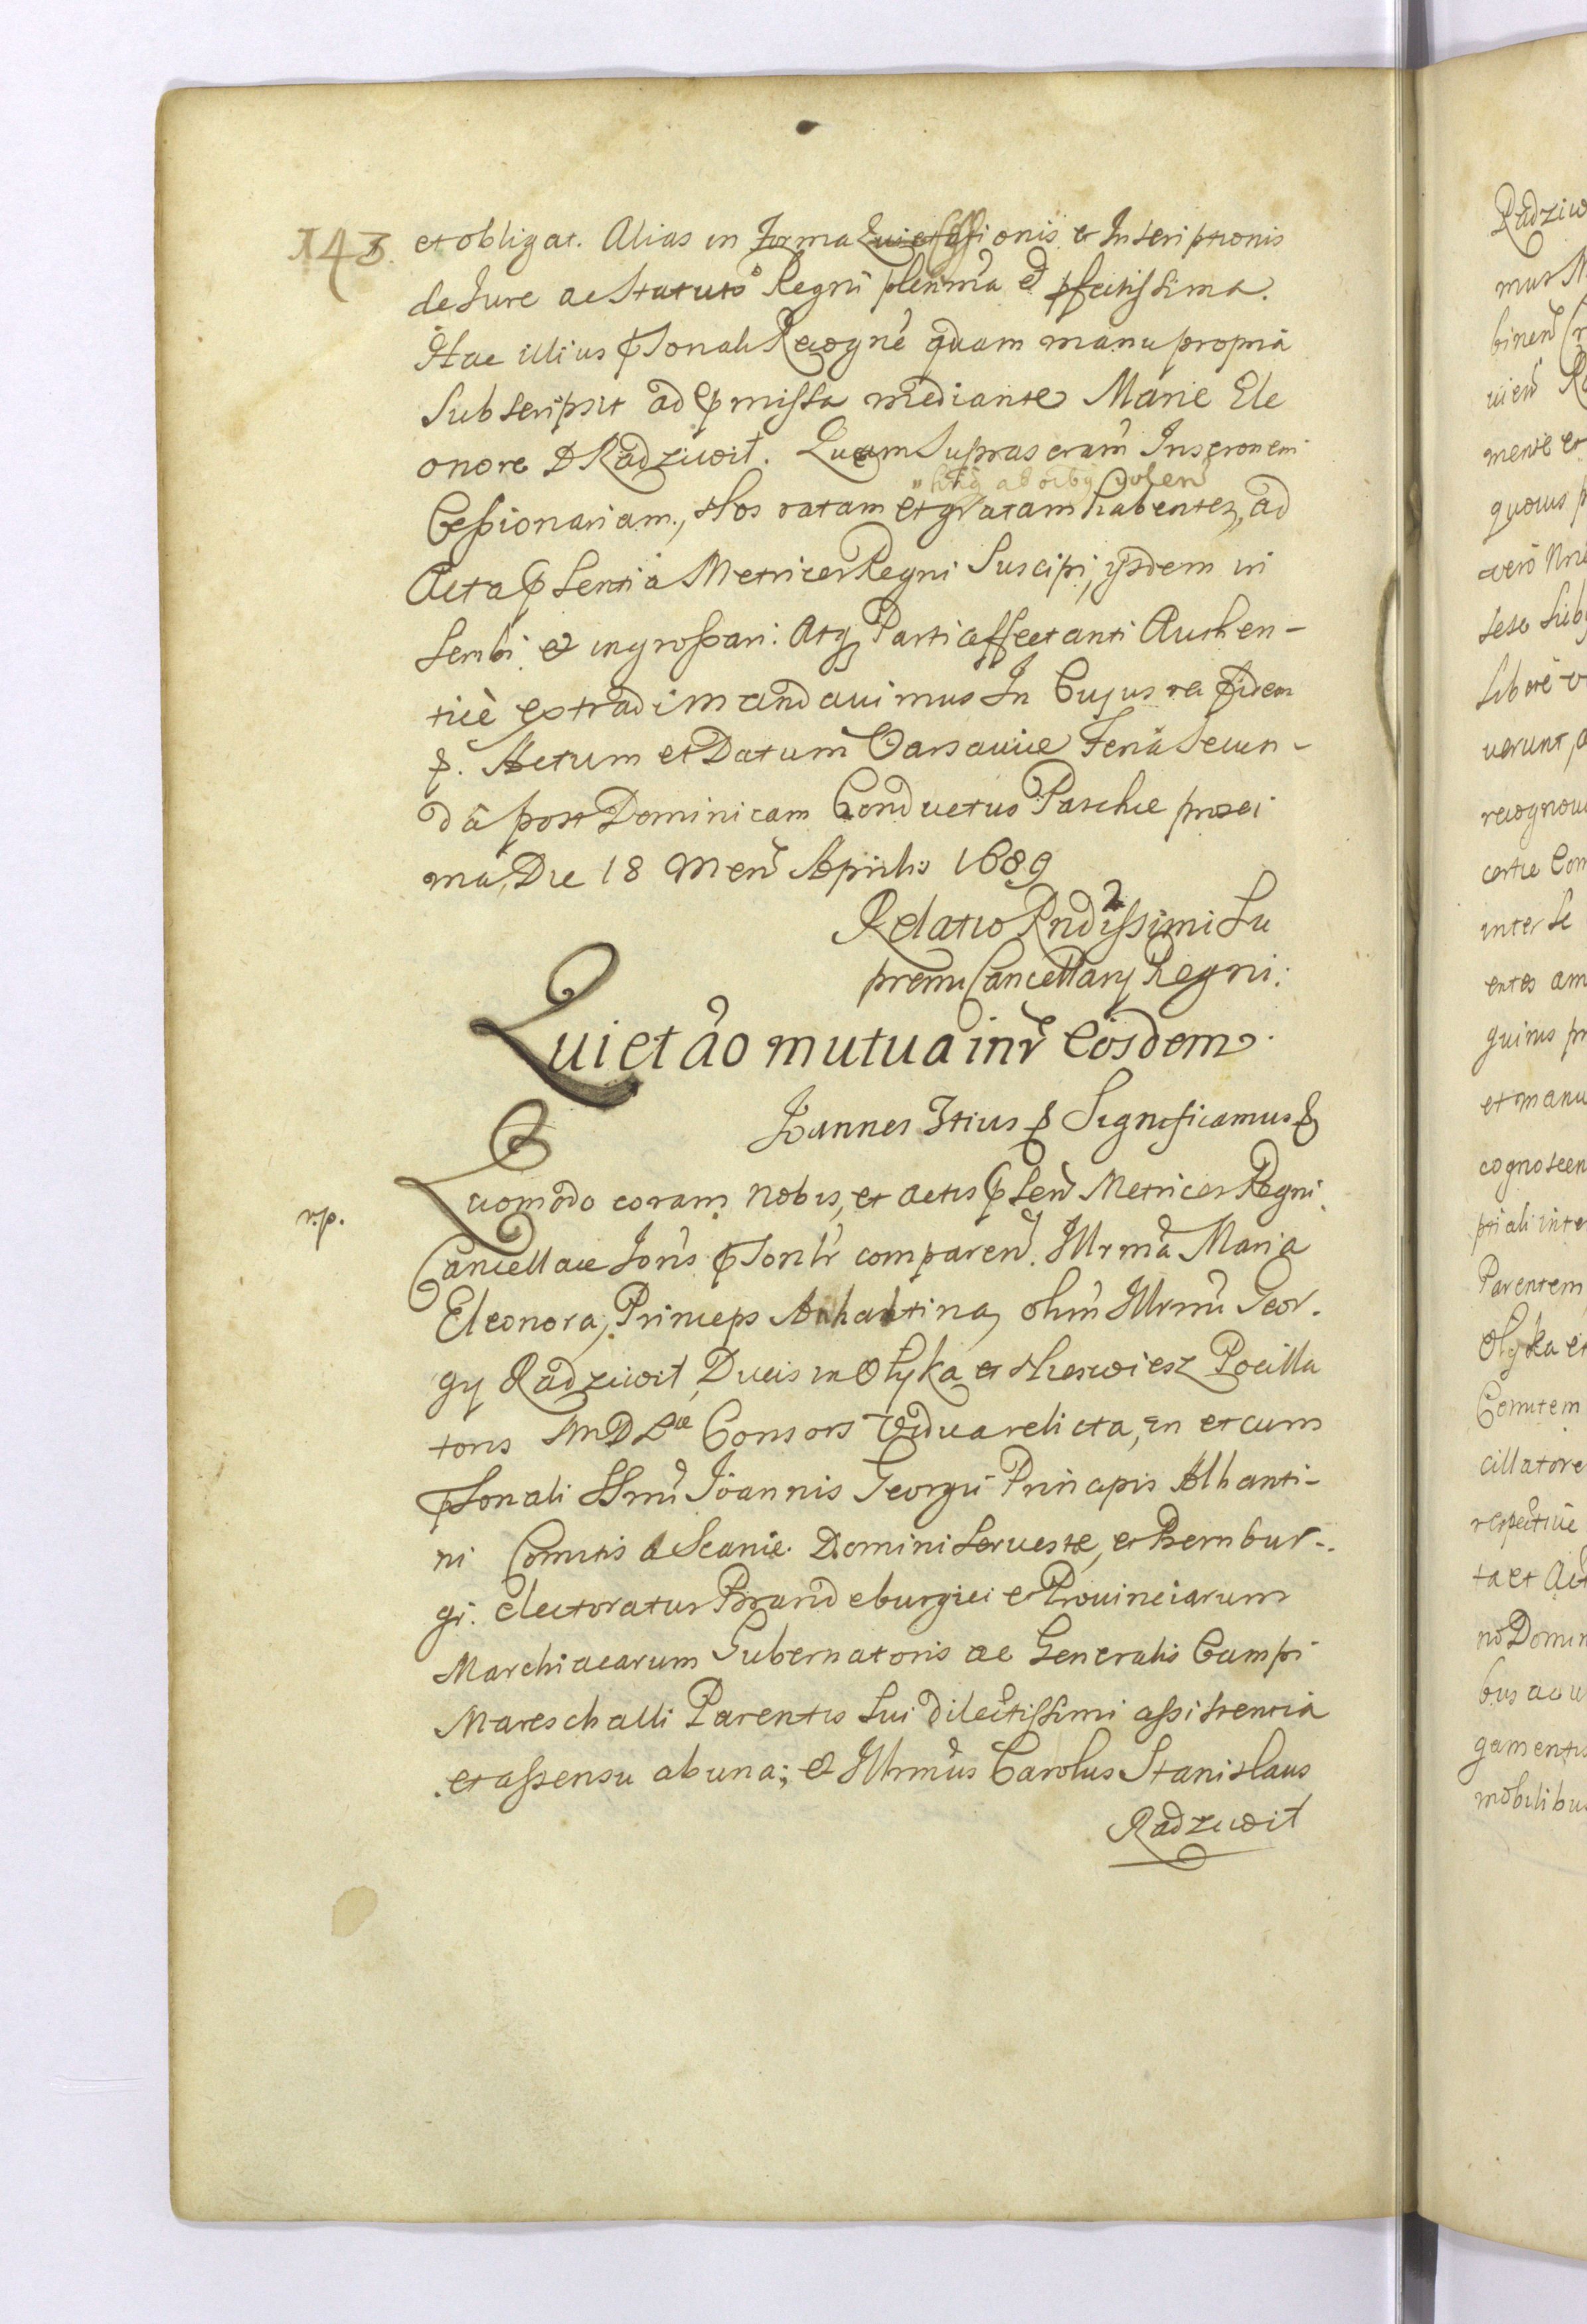 143. et obligat. Alias in forma Cessionis et Inscriptionis
de Jure ac Statuto Regni plenima et pfectissima.
Hac illius psonali Recogne quam manu propria
Subscripsit ad pmissa mediante Marie Ele
onore D Radziwił. Quam supras cram Inscronem
volen
Cessionariam, Nos ratam et gratam habentes, ad
Acta psentia Metrices Regni Suscipi, ijsdem in
scribi et ingrossari: Atq Parti affectanti Authen-
ticè extradi mandavimus In Cujus rei fidem
p. Actum et Datum Varsaviæ Feria Secun-
dâ post Dominicam Conductus Paschæ proxi
ma, Die 18 Men Aprilis 1689
Relatio Rndissimi Su
premi Cancellarij Regni:
Quietâo mutua intr Eosdem
Joannes 3tius p Significamus p
v.p. Quomodo coram nobis, et actis psen Metrices Regni
Cancellariæ Joris psonlr comparen. Illrma Maria
Eleonora, Princeps Anhaltina, olim Illrmi Geor-
gij Radziwił, Ducis in Ołyka et Nieswiesz Pocilla
toris M D L Consors Vidua relicta, in et cum
psonali Ssmi Joannis Georgii Principis Alhanti-
ni Comitis Ascanie Domini Servestæ, et Bernbur-
gi. Electoratus Brandeburgici et Provinciarum
Marchiacarum Gubernatoris ac Generalis Campi
Mareschalli Parentis sui dilectissimi assistentia
et assensu ab una; et Illrmus Carolus Stanislaus
Radziwił
Radziw
mus
binen
vien
mente et
quovis p
vero
sese sub
libere
verunt
recognov
certæ Com
inter se
entes am
guinis pr
et manu
cognoscen
ptiali inte
Parentem
Ołyka et
Comitem
cillatore
respective
ta et Act
nō Domin
bus ac
gamentis
mobilibus